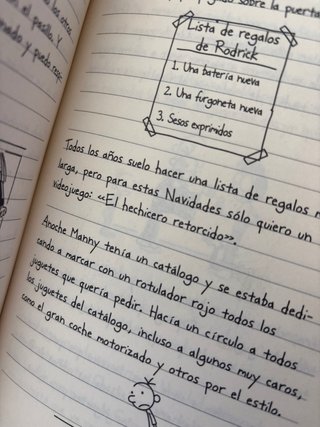 los otros
el pasillo. Y
sobre la puerta
Lista de regalos
de Rodrick
1. Una batería nueva
2. Una furgoneta nueva
3. Sesos exprimidos
Todos los años suelo hacer una lista de regalos
larga, pero para estas Navidades sólo quiero un
videojuego: «El hechicero retorcido».
Anoche Manny tenía un catálogo y se estaba dedi-
cando a marcar con un rotulador rojo todos los
juguetes que quería pedir. Hacía un círculo a todos
los juguetes del catálogo, incluso a algunos muy caros,
como el gran coche motorizado y otros por el estilo.